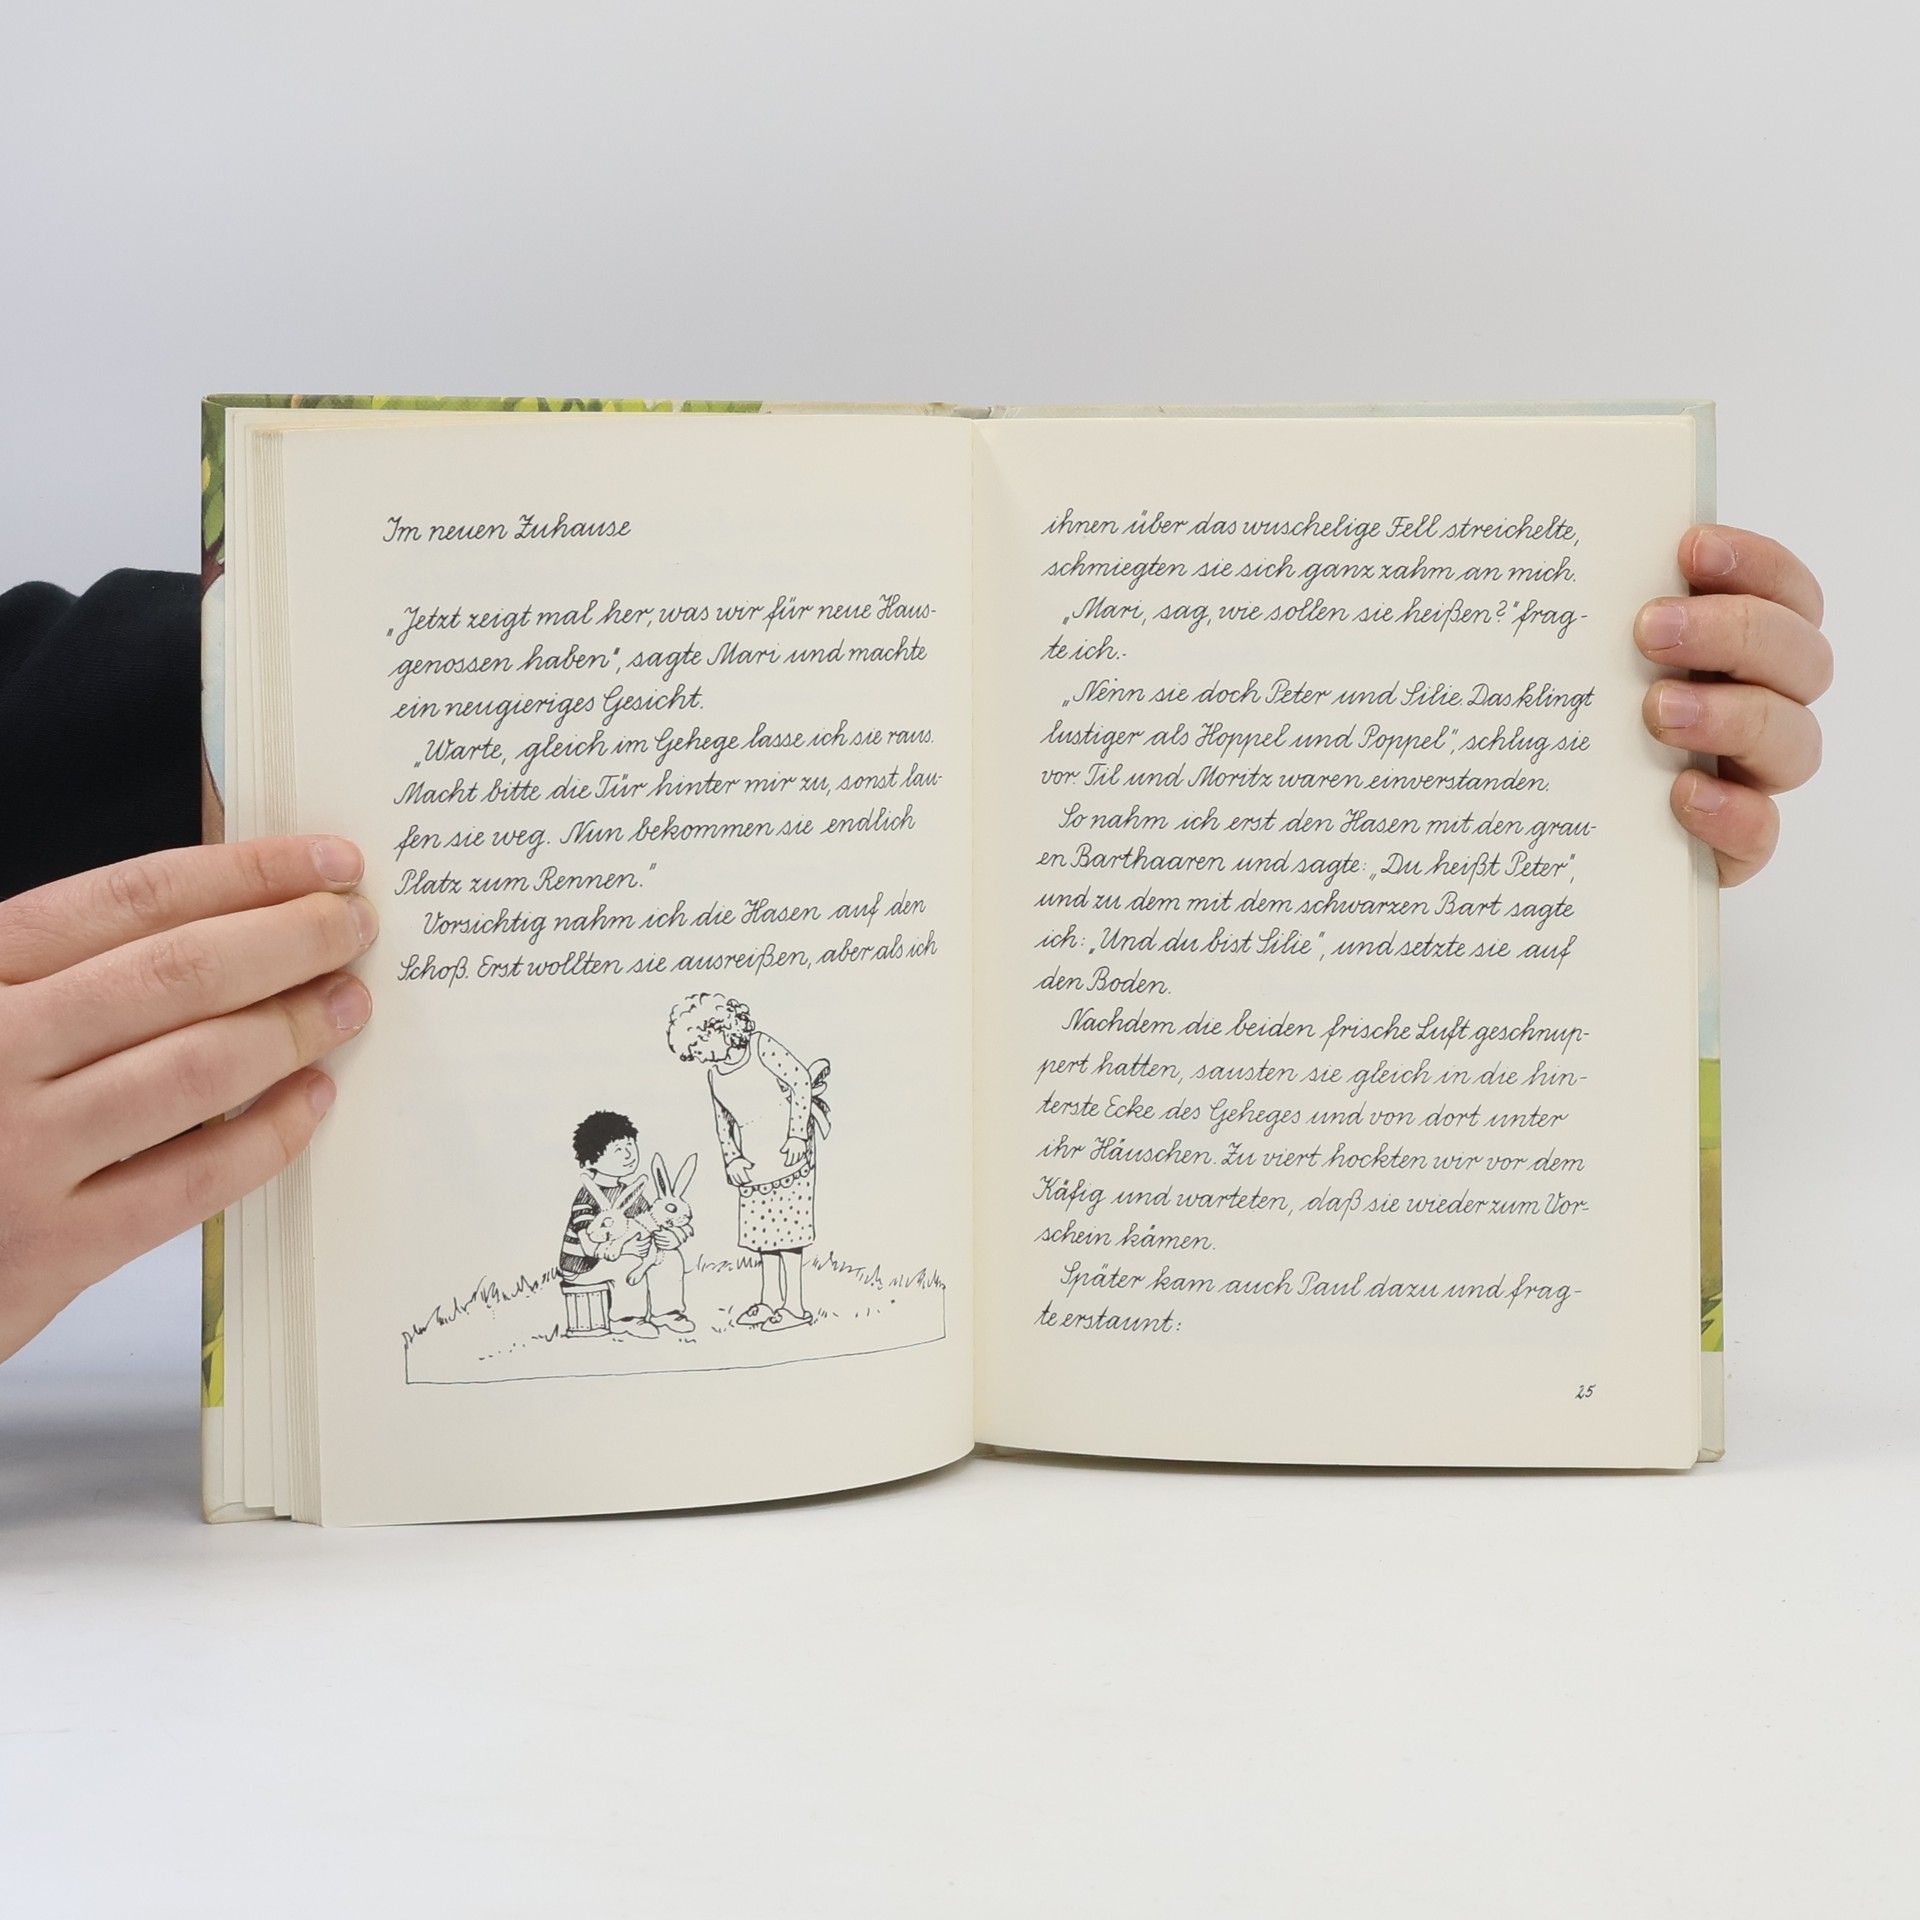 Im neuen Zuhause
„Jetzt zeigt mal her, was wir für neue Haus-
genossen haben", sagte Mari und machte
ein neugieriges Gesicht.
„Warte, gleich im Gehege lasse ich sie raus.
Macht bitte die Tür hinter mir zu, sonst lau-
fen sie weg. Nun bekommen sie endlich
Platz zum Rennen."
Vorsichtig nahm ich die Hasen auf den
Schoß. Erst wollten sie ausreißen, aber als ich
ihnen über das wuschelige Fell streichelte,
schmiegten sie sich ganz zahm an mich.
„Mari, sag, wie sollen sie heißen?" frag-
te ich.
„Nenn sie doch Peter und Silie. Das klingt
lustiger als Hoppel und Poppel", schlug sie
vor. Til und Moritz waren einverstanden.
So nahm ich erst den Hasen mit den grau-
en Barthaaren und sagte: „Du heißt Peter",
und zu dem mit dem schwarzen Bart sagte
ich: „Und du bist Silie", und setzte sie auf
den Boden.
Nachdem die beiden frische Luft geschnup-
pert hatten, sausten sie gleich in die hin-
terste Ecke des Geheges und von dort unter
ihr Häuschen. Zu viert hockten wir vor dem
Käfig und warteten, daß sie wieder zum Vor-
schein kämen.
Später kam auch Paul dazu und frag-
te erstaunt:
25